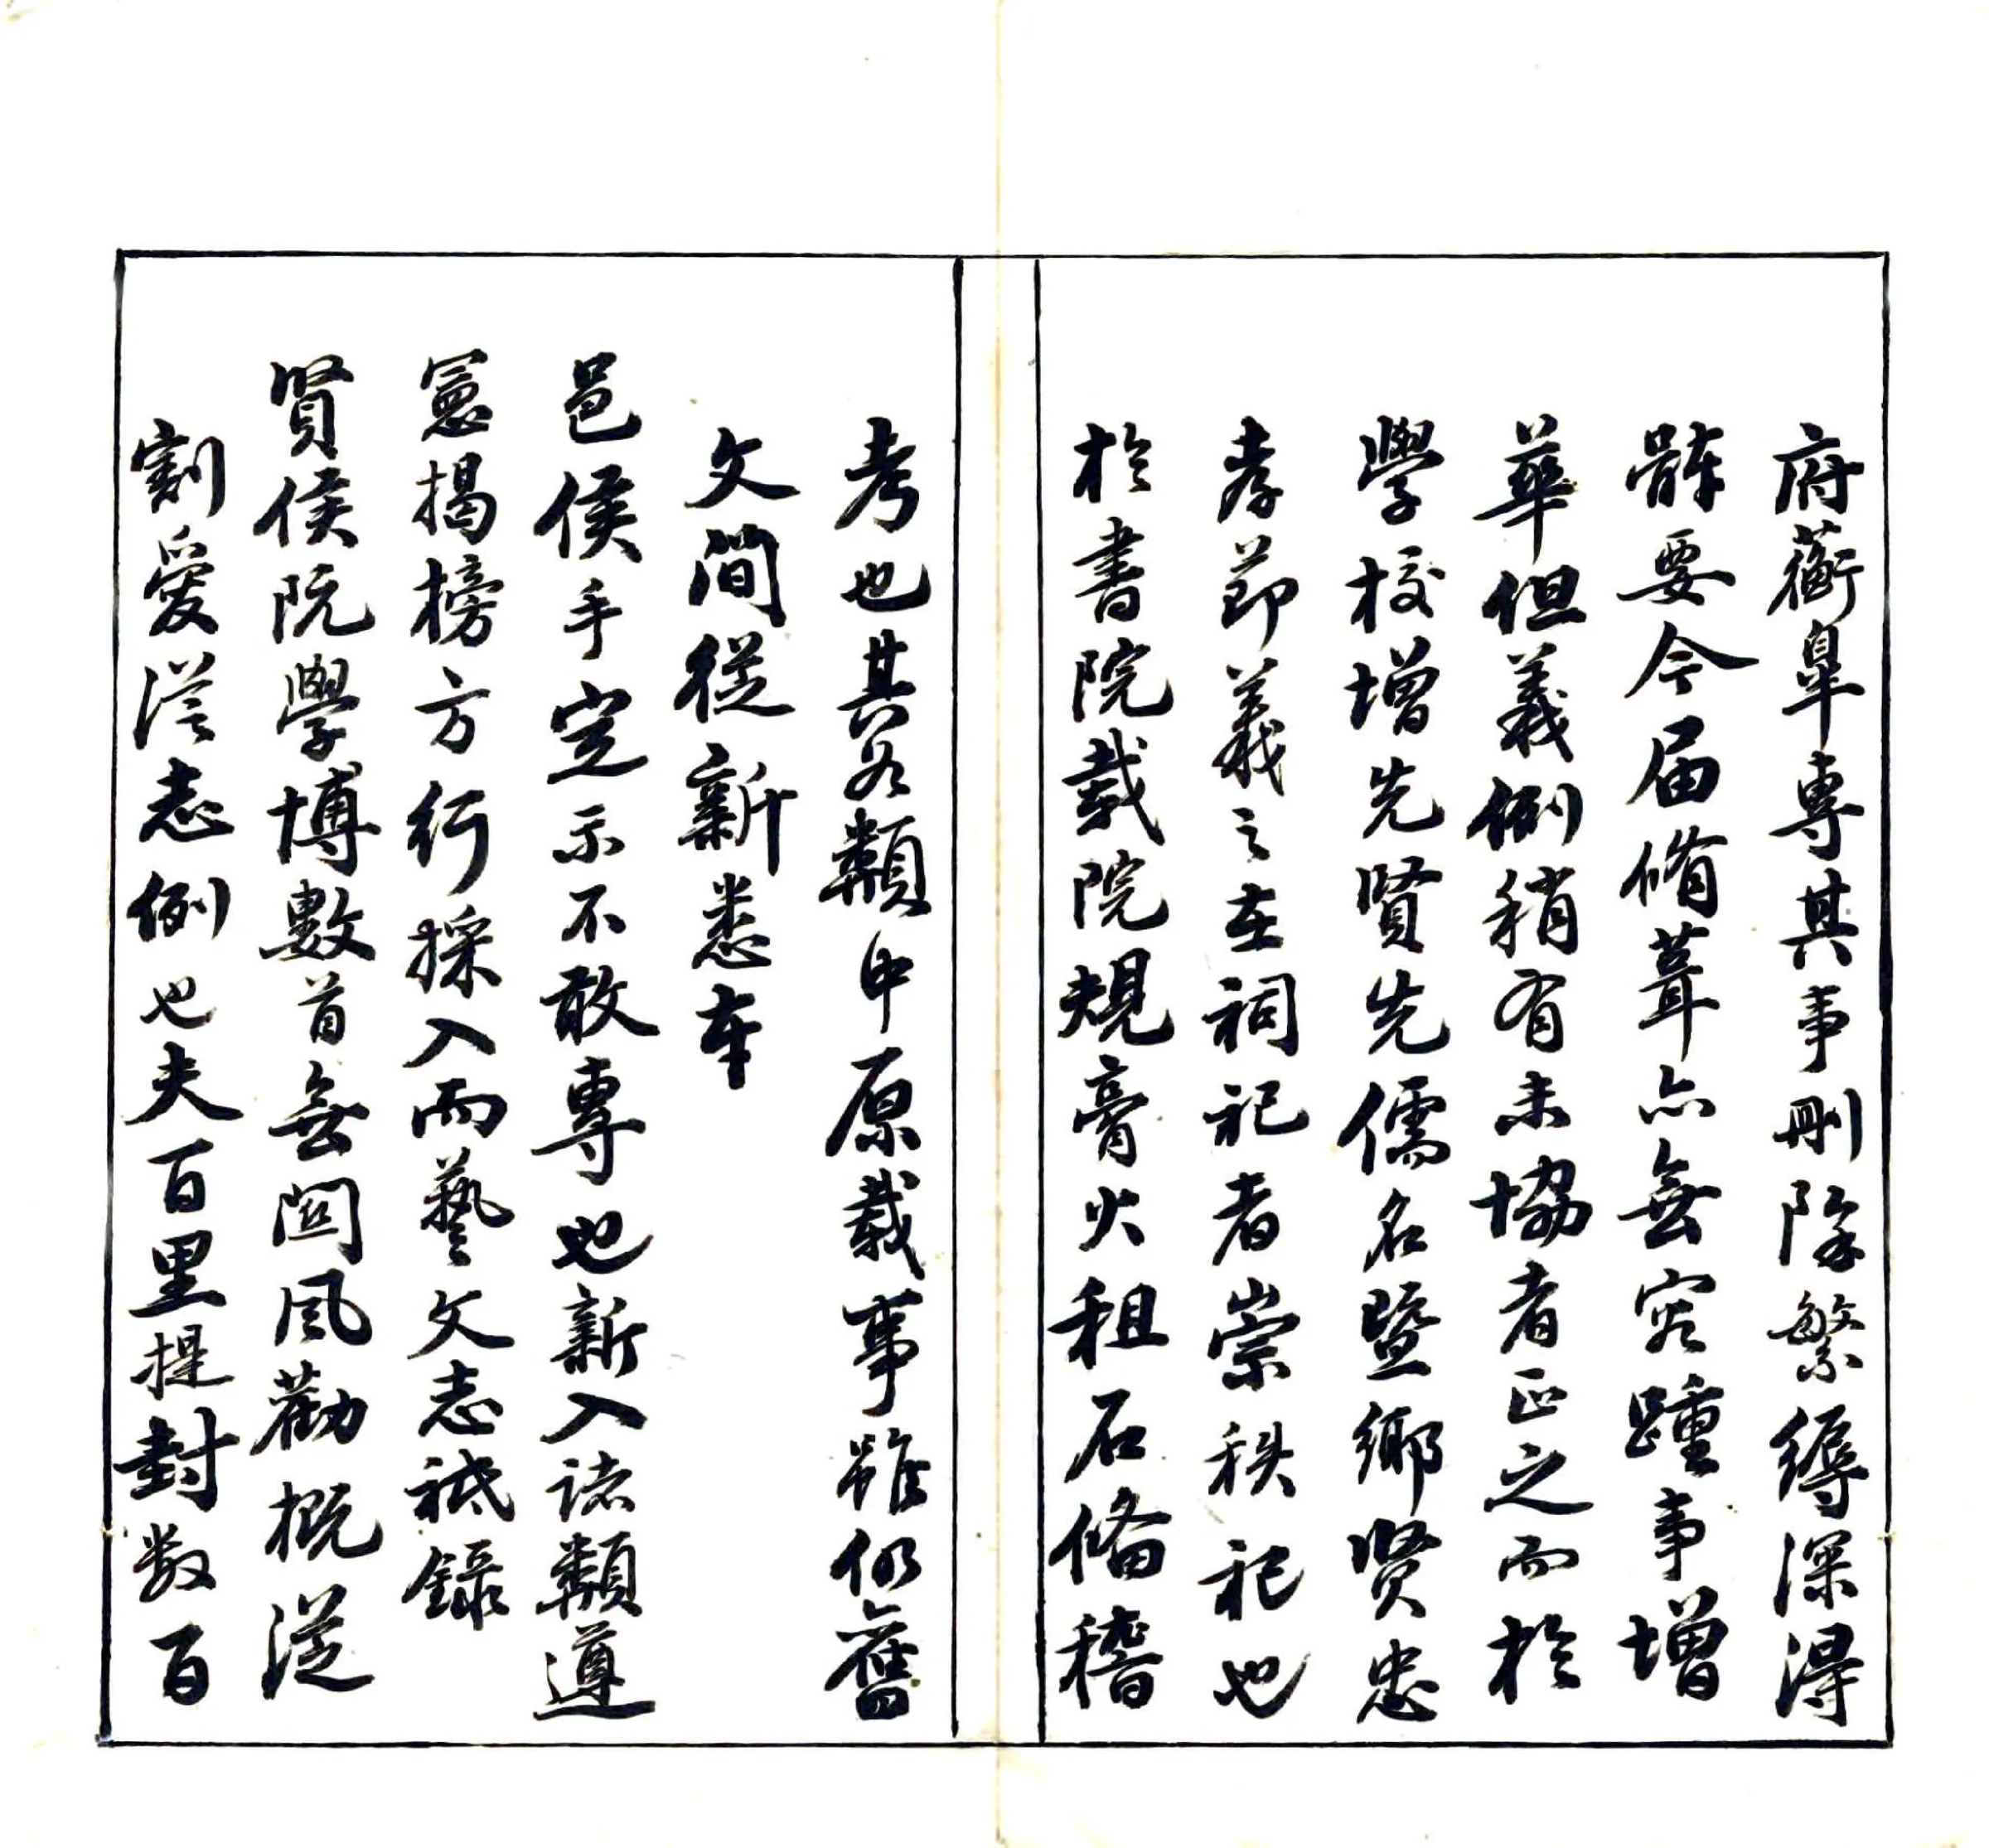 府蘅臯專其事刪除繁縟深得
體要今届脩葺亦無容踵事增
華但義例稍有未協者正之而於
學校增先賢先儒名暨鄉賢忠
孝節義之在祠祀者崇秩祀也
於書院載院規膏火租石俻稽
考也其各類中原載事雖仍舊
文間從新悉本
邑侯手定示不敢專也新入諸類遵
憲揭榜方行採入而藝文志祗錄
賢侯阮學博數首無關風勸概從
割愛從志例也夫百里提封数百